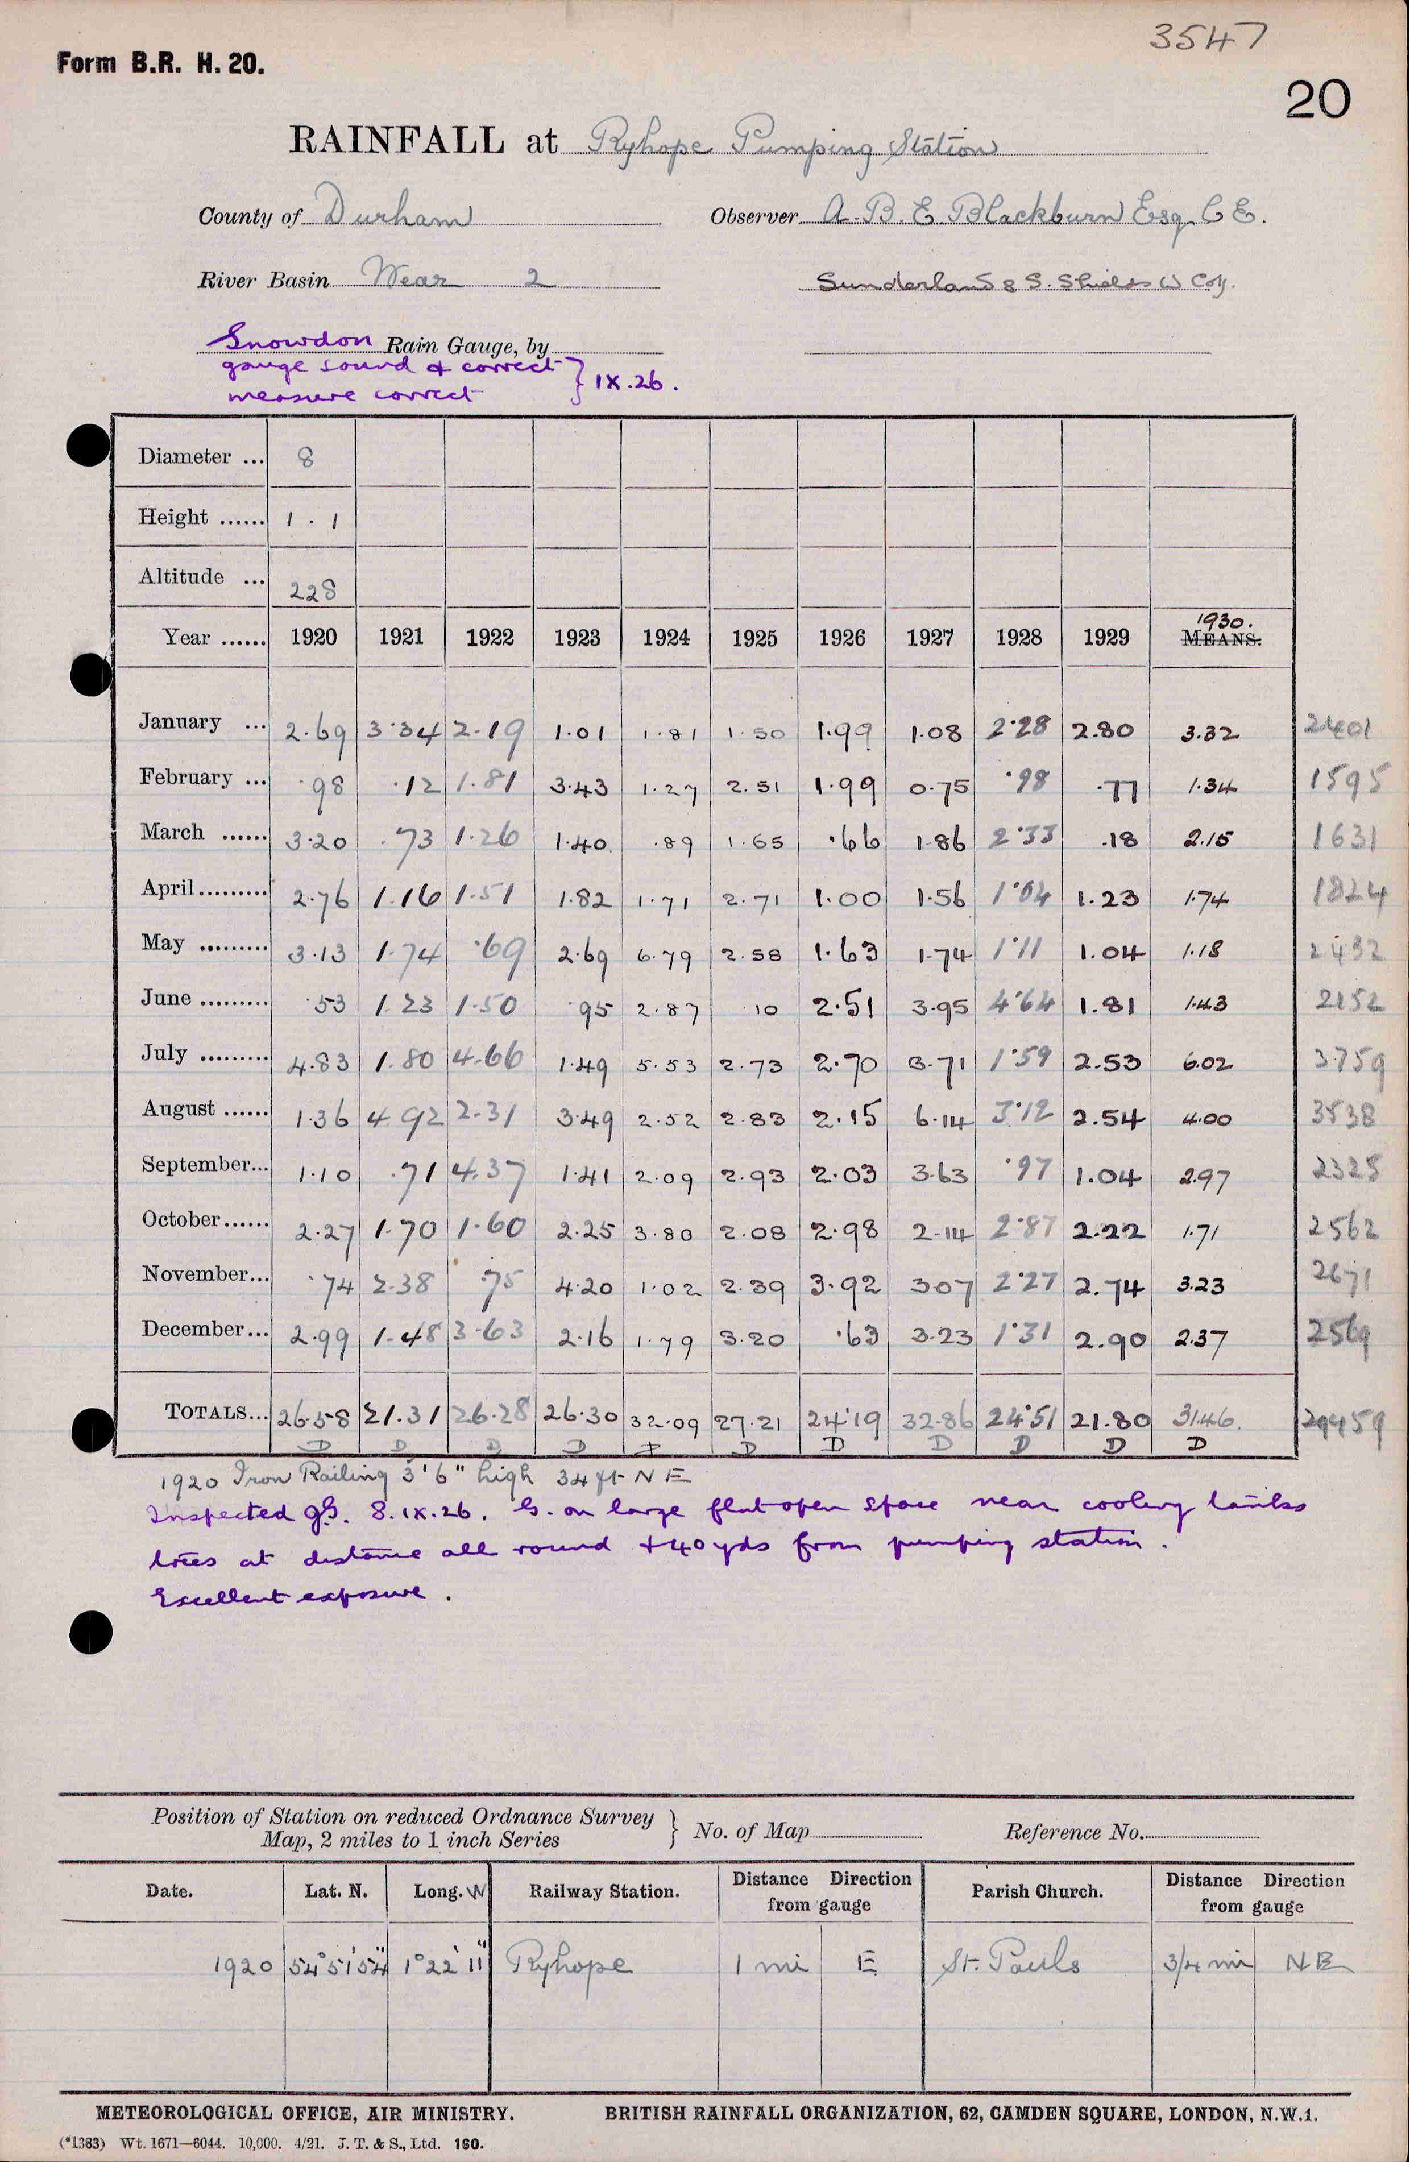 3547
Form B.R. H. 20.
20
RAINFALL at Ryhope Pumping Station
County of Durham Observer A. B. E Blackburn Esq. C E.
River Basin Wear 2 Sunderland & S. Shields W Coy.
Snowdon Rain Gauge, by
gauge sound & correct } IX.26.
measure correct
Diameter ... 8
Height ...... 1 . 1
Altitude ... 228
Year ...... 1920 1921 1922 1923 1924 1925 1926 1927 1928 1929 1930. MEANS.
January ... 2.69 3.34 2.19 1.01 1.81 1.50 1.99 1.08 2.28 2.80 3.32 2401
February ... .98 .12 1.81 3.43 1.27 2.51 1.99 0.75 .98 .77 1.34 1595
March ...... 3.20 .73 1.26 1.40 .89 1.65 .66 1.86 2.33 .18 2.15 1631
April ......... 2.76 1.16 1.51 1.82 1.71 2.71 1.00 1.56 1.04 1.23 1.74 1824
May ......... 3.13 1.74 .69 2.69 6.79 2.58 1.63 1.74 1.11 1.04 1.18 2432
June ......... .53 1.23 1.50 .95 2.87 .10 2.51 3.95 4.64 1.81 1.43 2152
July ......... 4.83 1.80 4.66 1.49 5.53 2.73 2.70 3.71 1.59 2.53 6.02 3759
August ...... 1.36 4.92 2.31 3.49 2.52 2.83 2.15 6.14 3.12 2.54 4.00 3538
September... 1.10 .71 4.37 1.41 2.09 2.93 2.03 3.63 .97 1.04 2.97 2325
October...... 2.27 1.70 1.60 2.25 3.80 2.08 2.98 2.14 2.87 2.22 1.71 2562
November... .74 2.38 .75 4.20 1.02 2.39 3.92 3.07 2.27 2.74 3.23 2671
December... 2.99 1.48 3.63 2.16 1.79 3.20 .63 3.23 1.31 2.90 2.37 2569
TOTALS... 26.58 21.31 26.28 26.30 32.09 27.21 24.19 32.86 24.51 21.80 31.46. 29459
D D D D D D D D D D D
1920 Iron Railing 3' 6" high 34 ft N E
Inspected J.G. 8.IX.26. G. on large flat open space near cooling tanks
trees at distance all round + 40 yds from pumping station.
Excellent exposure.
Position of Station on reduced Ordnance Survey
Map, 2 miles to 1 inch Series } No. of Map Reference No.
Date. Lat. N. Long. W Railway Station. Distance Direction from gauge Parish Church. Distance Direction from gauge
1920 54° 51' 54" 1° 22' 11" Ryhope 1 mi E St. Pauls 3/4 mi N E
METEOROLOGICAL OFFICE, AIR MINISTRY. BRITISH RAINFALL ORGANIZATION, 62, CAMDEN SQUARE, LONDON, N.W.1.
(*1383) Wt. 1671—6044. 10,000. 4/21. J. T. & S., Ltd. 160.